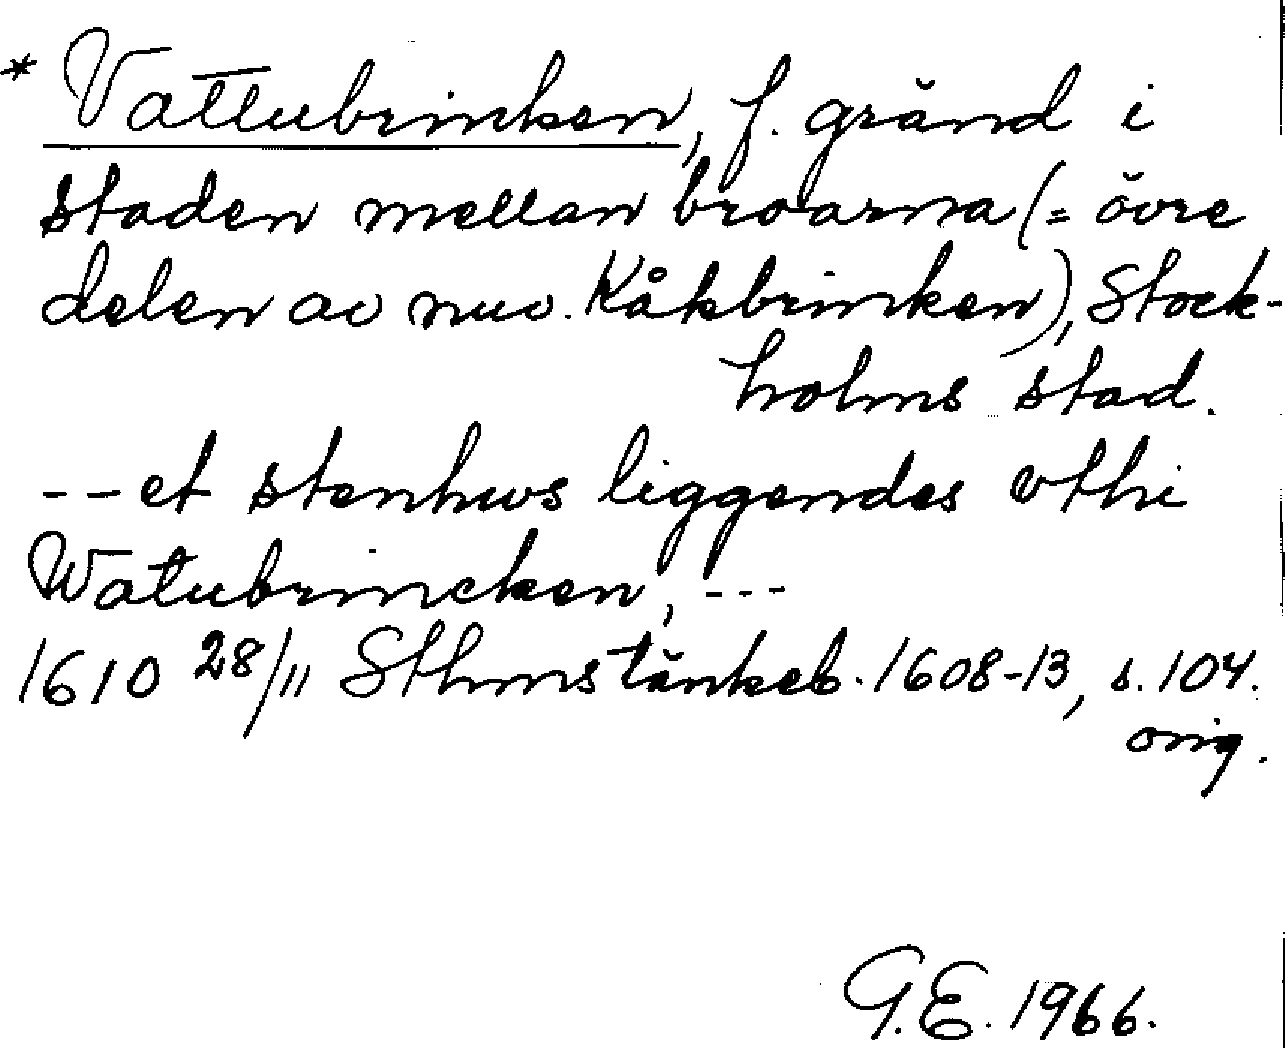 * Vattubrinken, f. gränd i
staden mellan broarna (= övre
delen av nuv. Kåkbrinken), Stock-
holms stad.
-- et stenhws liggendes vthi
Watubrincken, ---
1610 28/11 Sthms tänkeb. 1608-13, s. 104.
orig.
G.E. 1966.